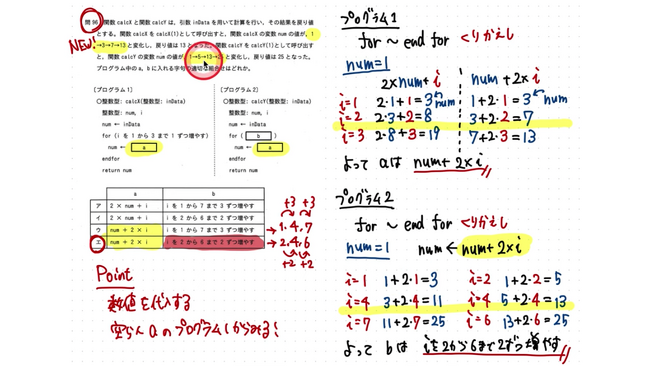 問96 関数 calcX と関数 calcY は、引数 inData を用いて計算を行い、その結果を戻り値
とする。関数 calcX を calcX(1) として呼び出すと、関数 calcX の変数 num の値が、1
NEW!
→3→7→13 と変化し、戻り値は 13 となった。関数 calcY を calcY(1) として呼び出す
と、関数 calcY の変数 num の値が 1→5→13→25 と変化し、戻り値は 25 となった。
プログラム中の a、b に入れる字句の適切な組合せはどれか。
〔プログラム1〕
○整数型: calcX(整数型: inData)
整数型: num, i
num ← inData
for (i を 1 から 3 まで 1 ずつ増やす)
num ← a
endfor
return num
〔プログラム2〕
○整数型: calcY(整数型: inData)
整数型: num, i
num ← inData
for ( b )
num ← a
endfor
return num
a b
ア 2 × num + i i を 1 から 7 まで 3 ずつ増やす
イ 2 × num + i i を 2 から 6 まで 2 ずつ増やす
ウ num + 2 × i i を 1 から 7 まで 3 ずつ増やす
エ num + 2 × i i を 2 から 6 まで 2 ずつ増やす
+3 +3
→ 1, 4, 7
→ 2, 4, 6
+2 +2
Point
数値を代入する
空らん aのプログラム1からみる!
プログラム1
for ~ end for くりかえし
num=1
2×num+i num+2×i
i=1 2・1+1=3 num 1+2・1=3 num
i=2 2・3+2=8 3+2・2=7
i=3 2・8+3=19 7+2・3=13
よって aは num+2×i
プログラム2
for ~ end for くりかえし
num=1 num ← num+2×i
i=1 1+2・1=3 i=2 1+2・2=5
i=4 3+2・4=11 i=4 5+2・4=13
i=7 11+2・7=25 i=6 13+2・6=25
よって bは iを2から6まで2ずつ増やす